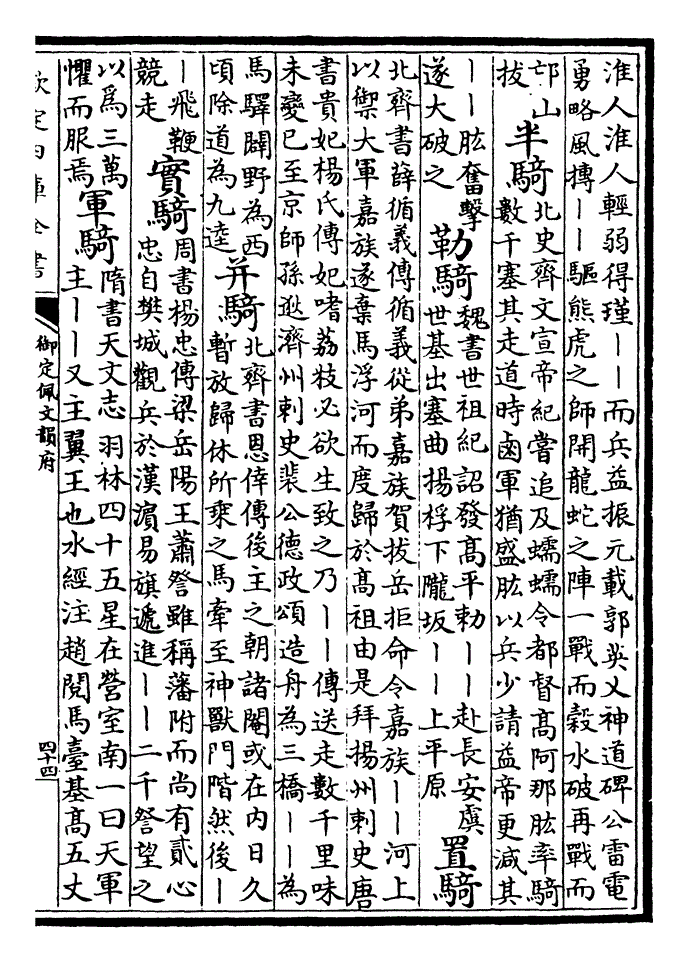 淮人淮人輕弱得瑾丨丨而兵益振元載郭英乂神道碑公雷電
勇略風摶丨丨驅熊虎之師開龍蛇之陣一戰而穀水破再戰而
邙山
拔
半騎
北史齊文宣帝紀嘗追及蠕蠕令都督髙阿那肱率騎
數千塞其走道時鹵軍猶盛肱以兵少請益帝更减其
丨丨肱奮擊
遂大破之
勒騎
魏書世祖紀詔發髙平勅丨丨赴長安虞
世基出塞曲揚桴下隴坂丨丨上平原
置騎
北齊書薛循義傳循義從弟嘉族賀拔岳拒命令嘉族丨丨河上
以禦大軍嘉族遂棄馬浮河而度歸於髙祖由是拜揚州刺史唐
書貴妃楊氏傳妃嗜荔枝必欲生致之乃丨丨傳送走數千里味
未變已至京師孫逖濟州刺史裴公德政頌造舟為三橋丨丨為
馬驛闢野為西
頃除道為九逵
并騎
北齊書恩倖傳後主之朝諸閹或在内日久
暫放歸休所乗之馬牽至神獸門階然後丨
丨飛鞭
競走
實騎
周書楊忠傳梁岳陽王蕭詧雖稱藩附而尚有貳心
忠自樊城觀兵於漢濵易旗遞進丨丨二千詧望之
以爲三萬
懼而服焉
軍騎
隋書天文志羽林四十五星在營室南一曰天軍
主丨丨又主翼王也水經注趙閱馬臺基髙五丈
欽定四庫全書
御定佩文韻府
四十四